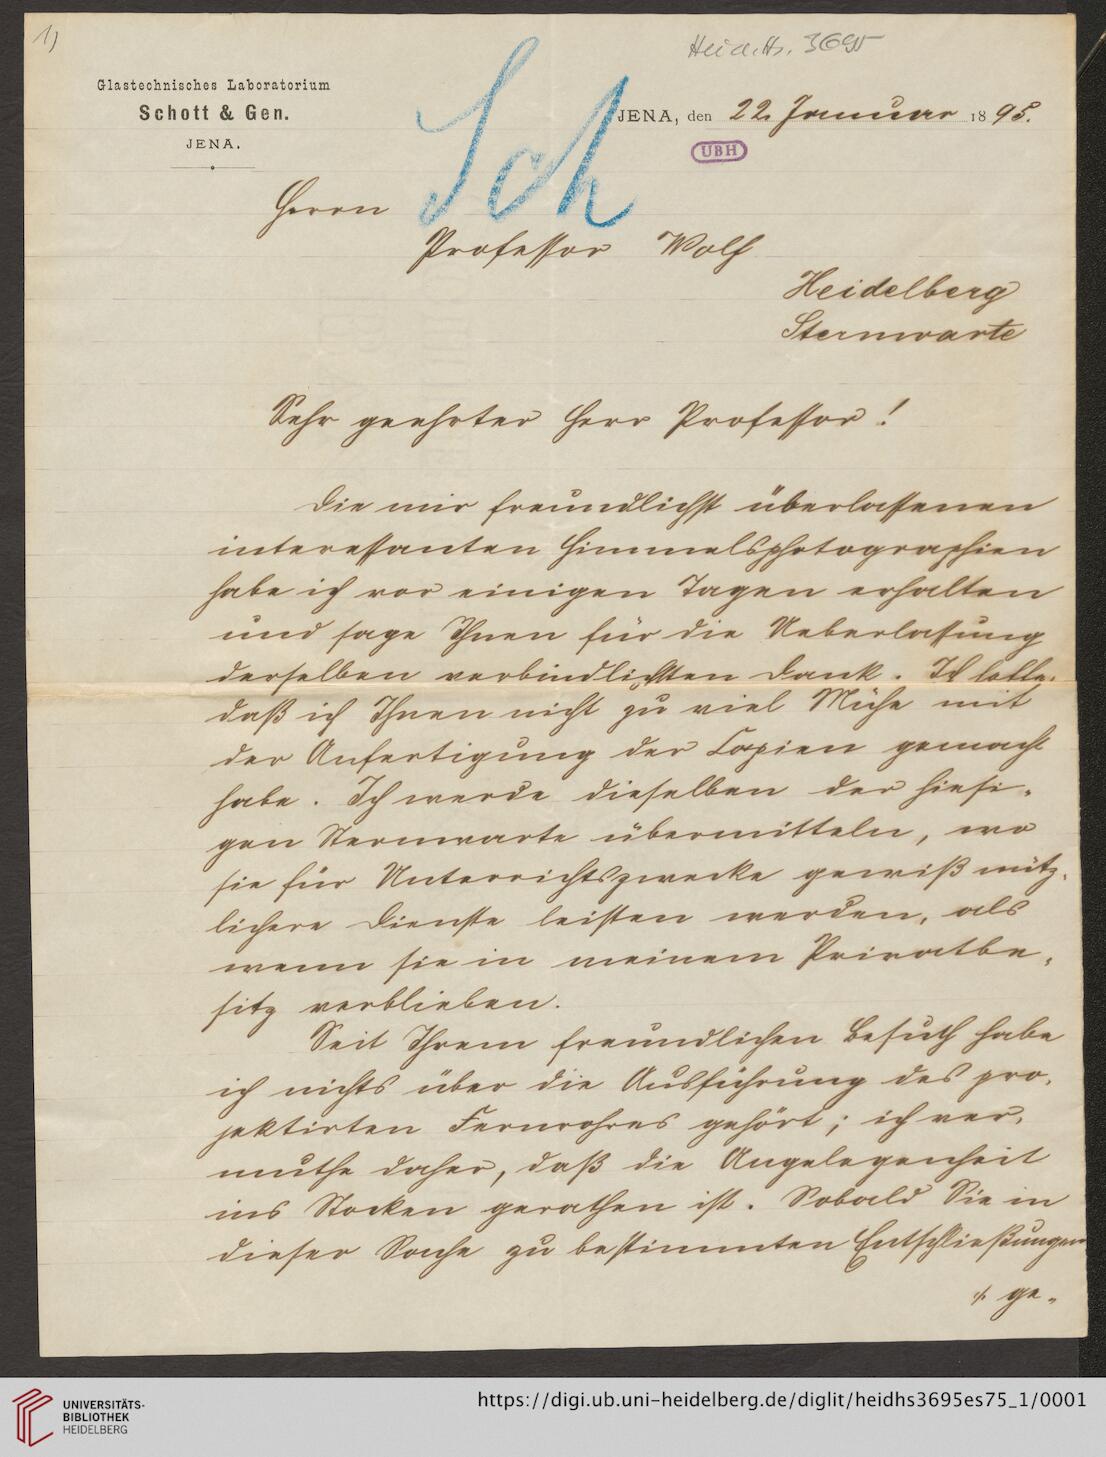 1)
Heid. Hs. 3695
Glastechnisches Laboratorium
Schott & Gen.
JENA.
JENA, den 22. Januar 1895.
UBH
Sch
Herrn
Professor Wolf
Heidelberg
Sternwarte
Sehr geehrter Herr Professor!
Die mir freundlichst überlassenen
interessanten Himmelsphotographien
habe ich vor einigen Tagen erhalten
und sage Ihnen für die Ueberlassung
derselben verbindlichsten Dank. Ich hoffe,
daß ich Ihnen nicht zu viel Mühe mit
der Anfertigung der Copien gemacht
habe. Ich werde dieselben der hiesi-
gen Sternwarte übermitteln, wo
sie für Unterrichtszwecke gewiß nütz-
lichere Dienste leisten werden, als
wenn sie in meinem Privatbe-
sitz verblieben.
Seit Ihrem freundlichen Besuch habe
ich nichts über die Ausführung des pro-
jektirten Fernrohres gehört; ich ver-
muthe daher, daß die Angelegenheit
ins Stocken gerathen ist. Sobald Sie in
dieser Sache zu bestimmten Entschließungen
./. ge-
UNIVERSITÄTS-
BIBLIOTHEK
HEIDELBERG
https://digi.ub.uni-heidelberg.de/diglit/heidhs3695es75_1/0001